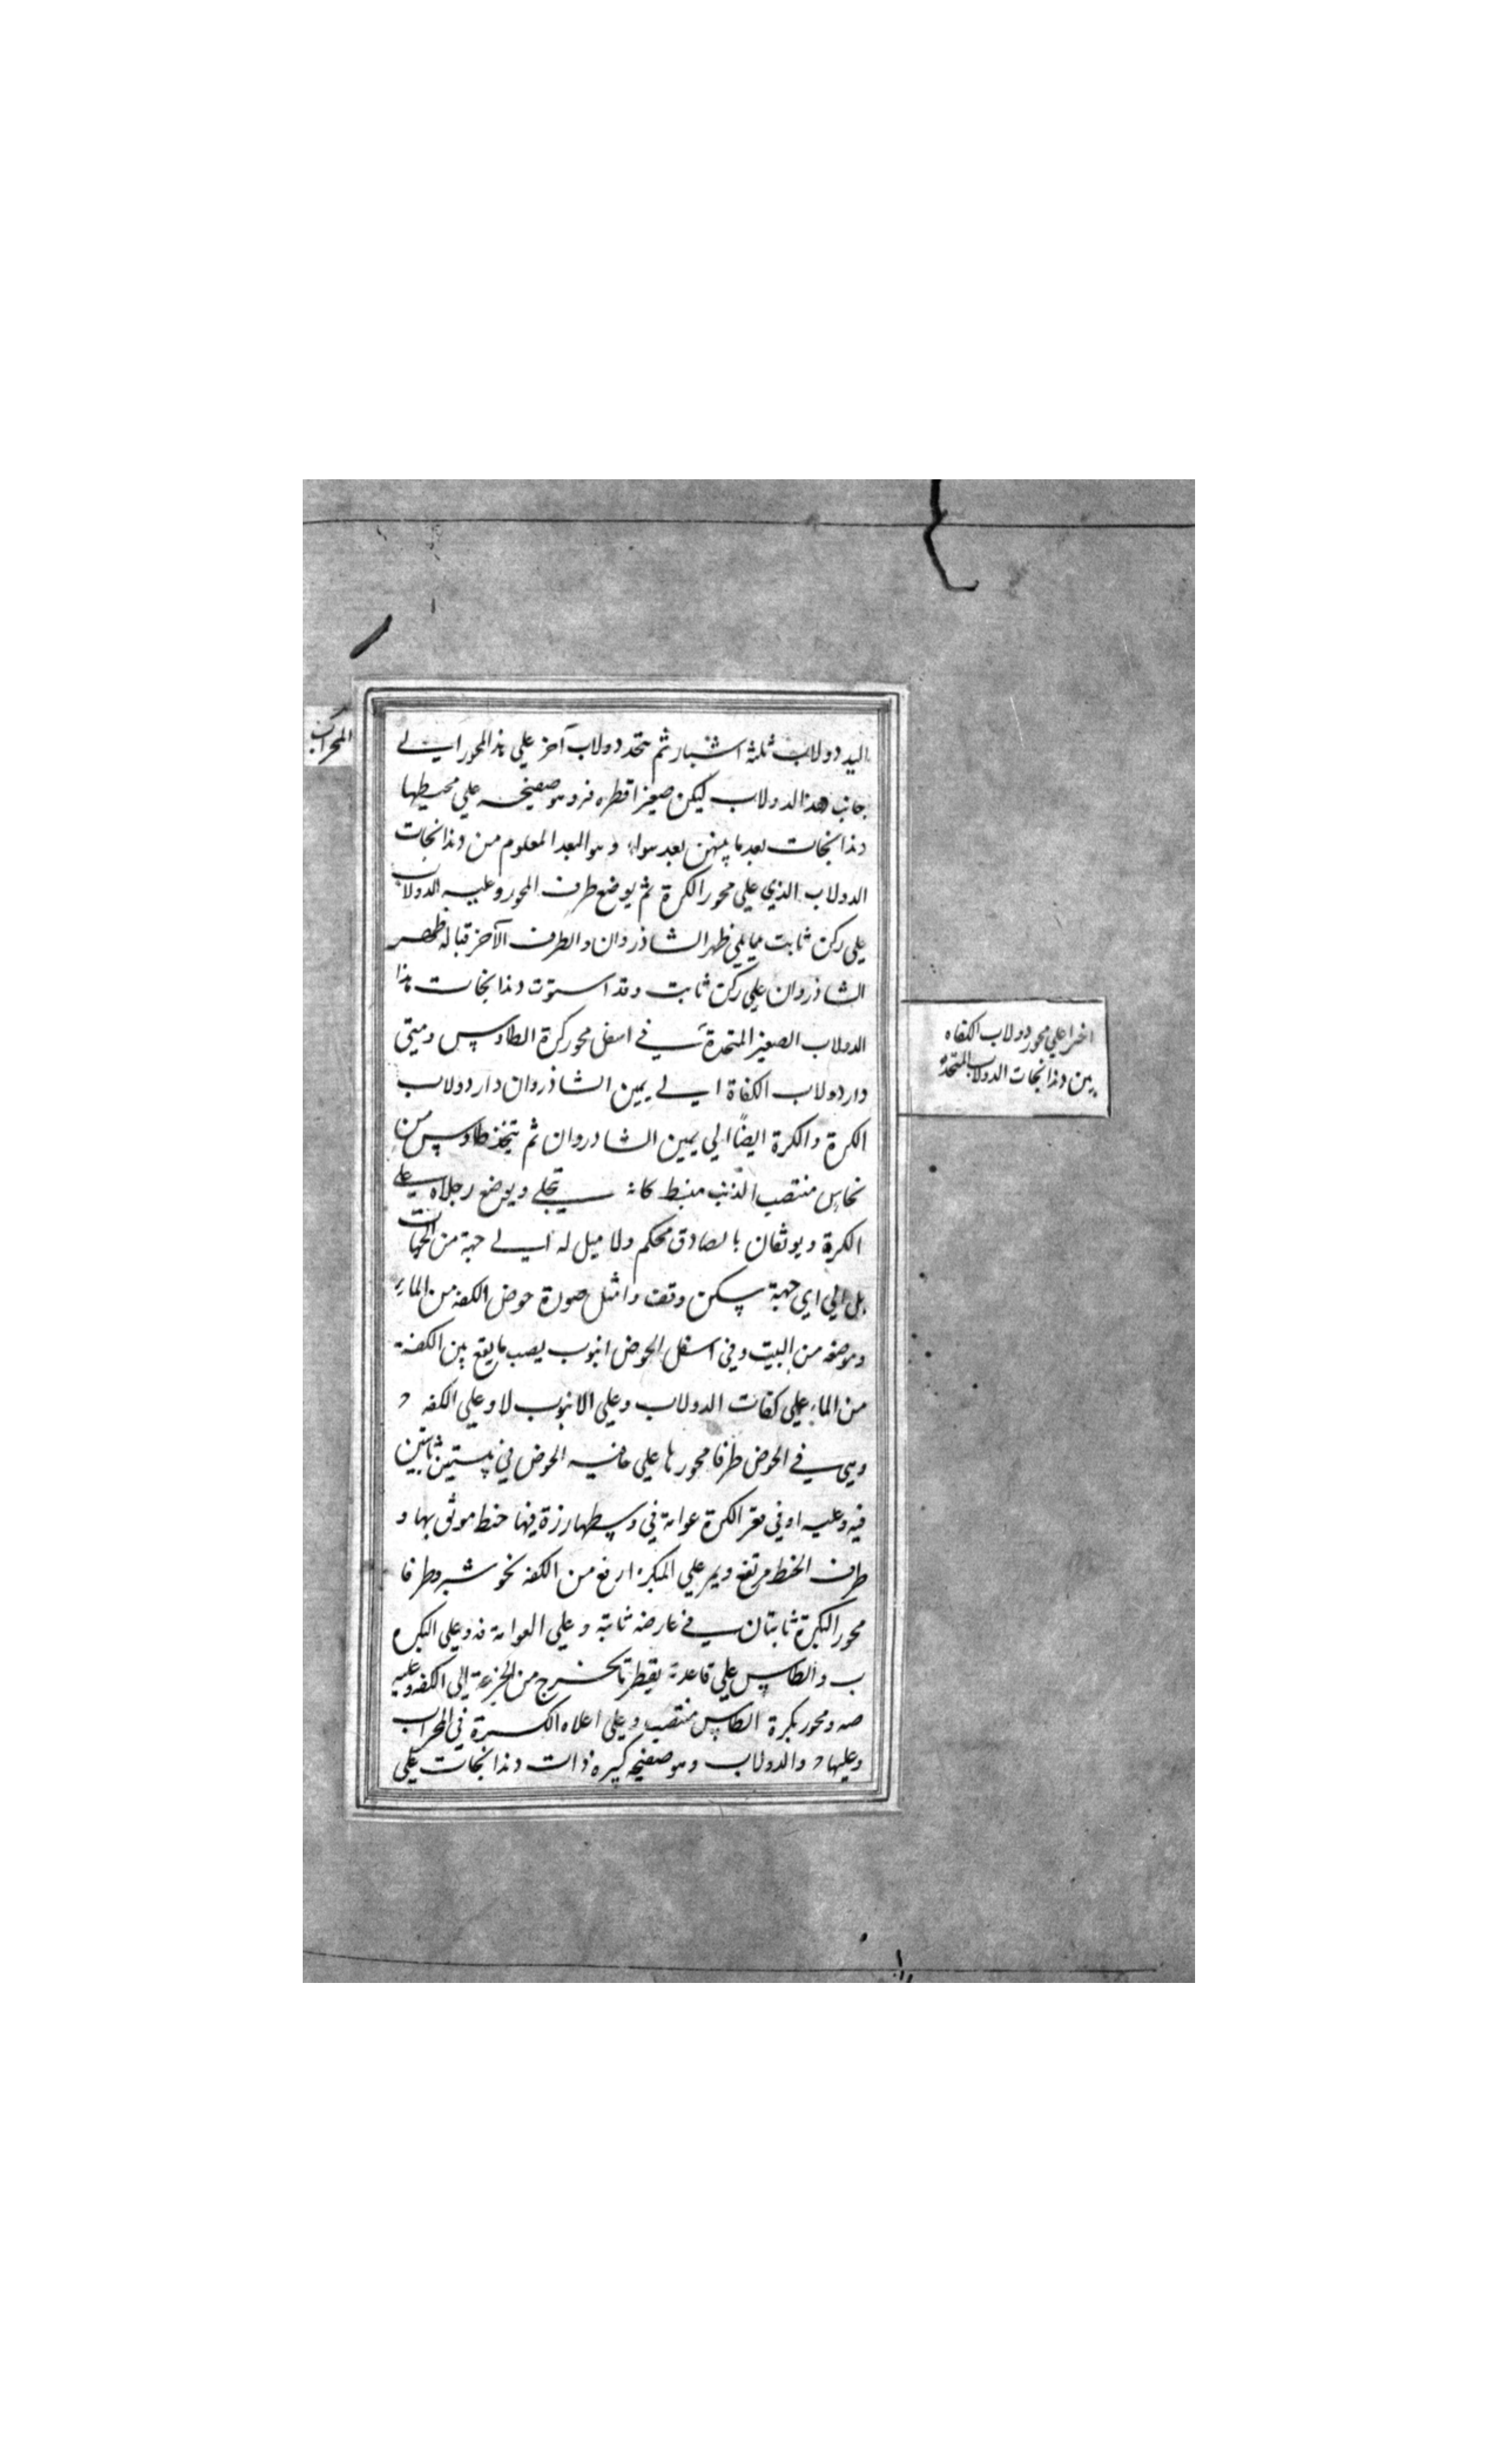 اليد دولاب ثلثة اشبار ثم يتخذ دولاب آخر علي هذا المحور الي
جانب هذا الدولاب ليكن صغيرا قطره فر وهو صفيحه علي محيطها
دندانجات بعد ما بينهن بعد سواء وهو البعد المعلوم من دندانجات
الدولاب الذي علي محور الكرة ثم يوضع طرف المحور وعليه الدولاب
علي ركن ثابت مما يلي ظهر الشاذروان والطرف الآخر قبالة ظهر
الشاذروان علي ركن ثابت وقد استوت دندانجات هذا
الدولاب الصغير المتخذة في اسفل محور كرة الطاوس ومتي
دار دولاب الكفاة الي يمين الشاذروان دار دولاب
الكرة والكرة ايضًا الي يمين الشاذروان ثم يتخذ طاوس من
نحاس منتصب الذنب منبسط كانه يتجلي ويوضع رجلاه علي
الكرة ويوثقان بالصادق محكم ولا ميل له الي جهة من الجهات
بل الي اي جهة سكن وقف وامثل صورة حوض الكفه من الماء
وموضعه من البيت وفي اسفل الحوض انبوب يصب ما يقع بين الكفة
من الماء علي كفات الدولاب وعلي الانبوب لا وعلي الكفه
وهي في الحوض طرفا محورها علي حافيه الحوض في بيتين ثابتين
فيه وعليه او في مقر الكرة عوامة في وسطها رزة فيها خيط موثق بها و
طرف الخيط مرتفع ويمر علي البكرة ارفع من الكفه نحو شبر وطرفا
محور البكرة ثابتان في عارضه ثابتة وعلي العوامة فه وعلي البكره
ب والطاس علي قاعدته يقطر تا يخرج من الجزعة الي الكفه وعليه
صه ومحور بكرة الطاس منتصب وعلي اعلاه الكرة في المحراب
وعليها والدولاب وهو صفيحه كبيره ذات دندانجات علي
اخرا علي محور دولاب الكفاه
بين دندانجات الدولاب المتخذه
المحراب